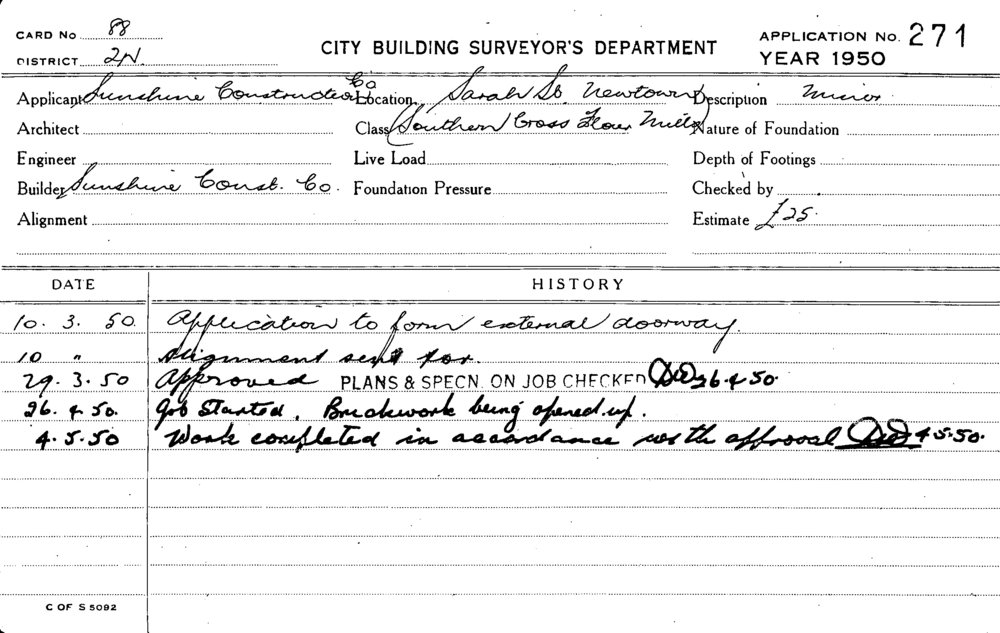 CARD No 88
CITY BUILDING SURVEYOR'S DEPARTMENT
APPLICATION No. 271
DISTRICT 2N.
YEAR 1950
Applicant Sunshine Construction Co Location Sarah St. Newtown Description minor
Architect Class (Southern Cross Flour Mills) Nature of Foundation
Engineer Live Load Depth of Footings
Builder Sunshine Const. Co. Foundation Pressure Checked by
Alignment Estimate £25.
DATE HISTORY
10. 3. 50. Application to form external doorway.
10 " Alignment sent for.
29. 3. 50 Approved PLANS & SPECN. ON JOB CHECKED 26.4.50.
26. 4. 50. Job Started. Brickwork being opened up.
4. 5. 50 Work completed in accordance with approval 4.5.50.
C OF S 5092